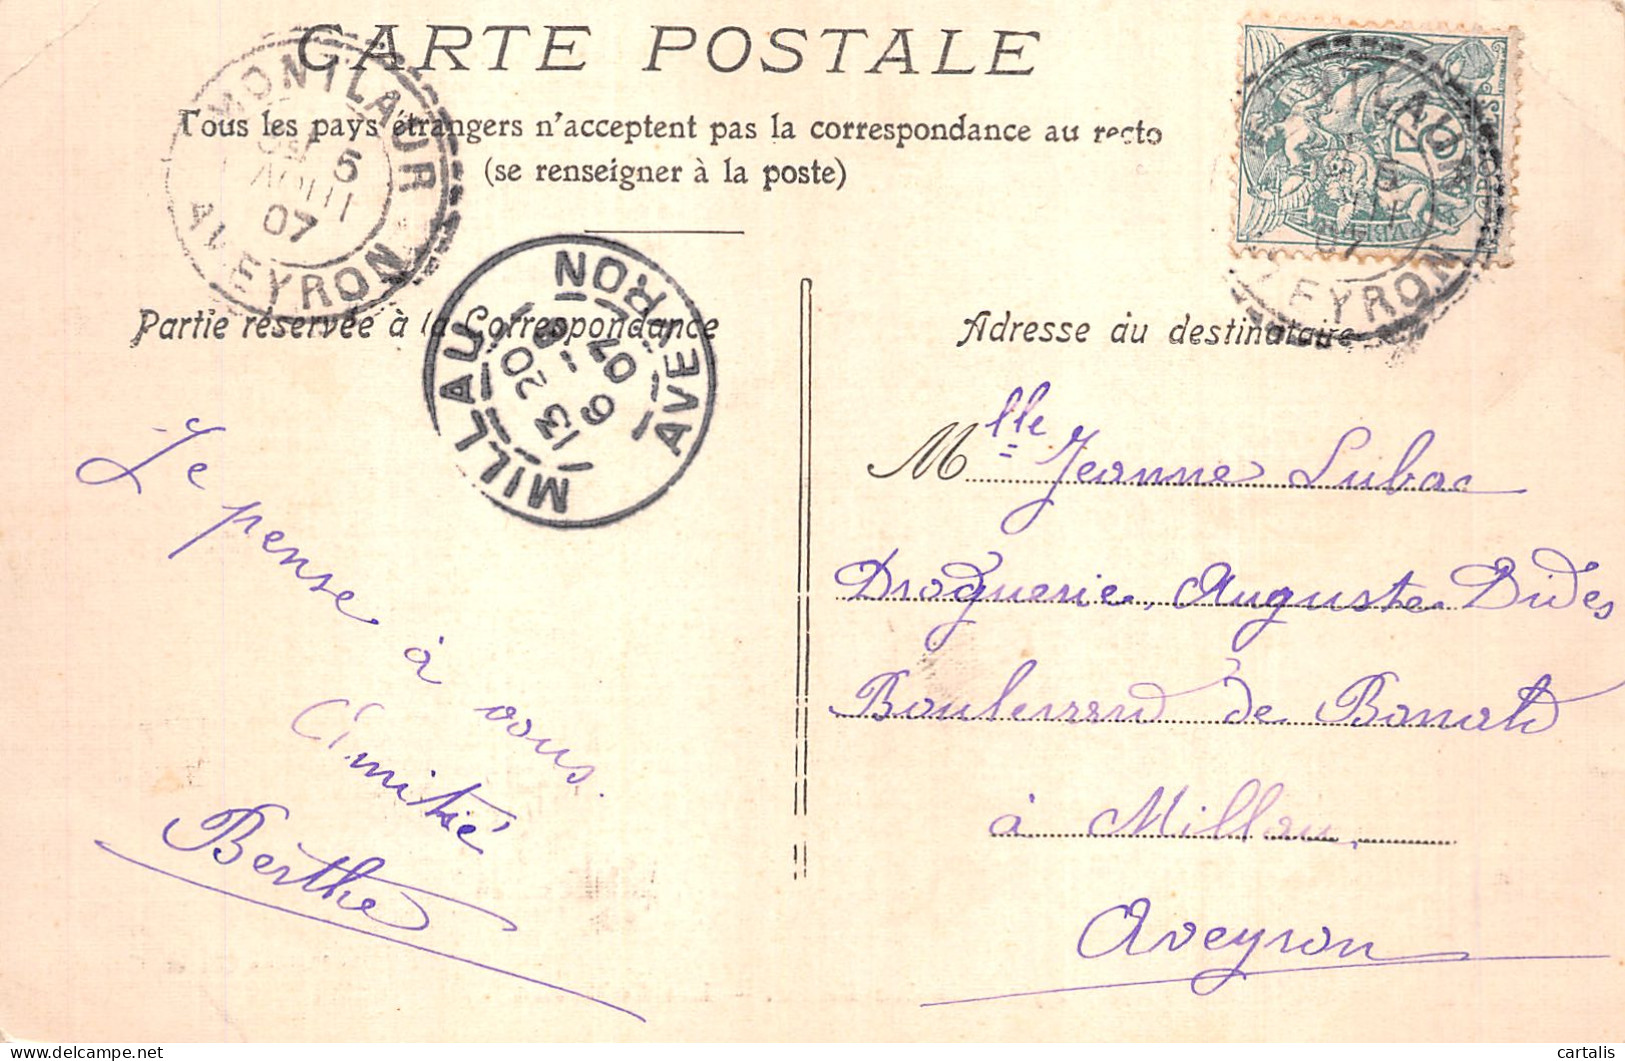 CARTE POSTALE
Tous les pays étrangers n'acceptent pas la correspondance au recto
(se renseigner à la poste)
MONTLAUR
5
AOUT
07
AVEYRON
POSTES
5
TLAUR
EYRON
MILLAU
13 20
6 - 8
07
AVEYRON
Partie réservée à la Correspondance
Adresse du destinataire
Je pense à vous.
Amitié
Berthe
Mlle Jeanne Lubac
Droguerie Auguste Dides
Boulevard de Bonald
à Millau
Aveyron
cartalis